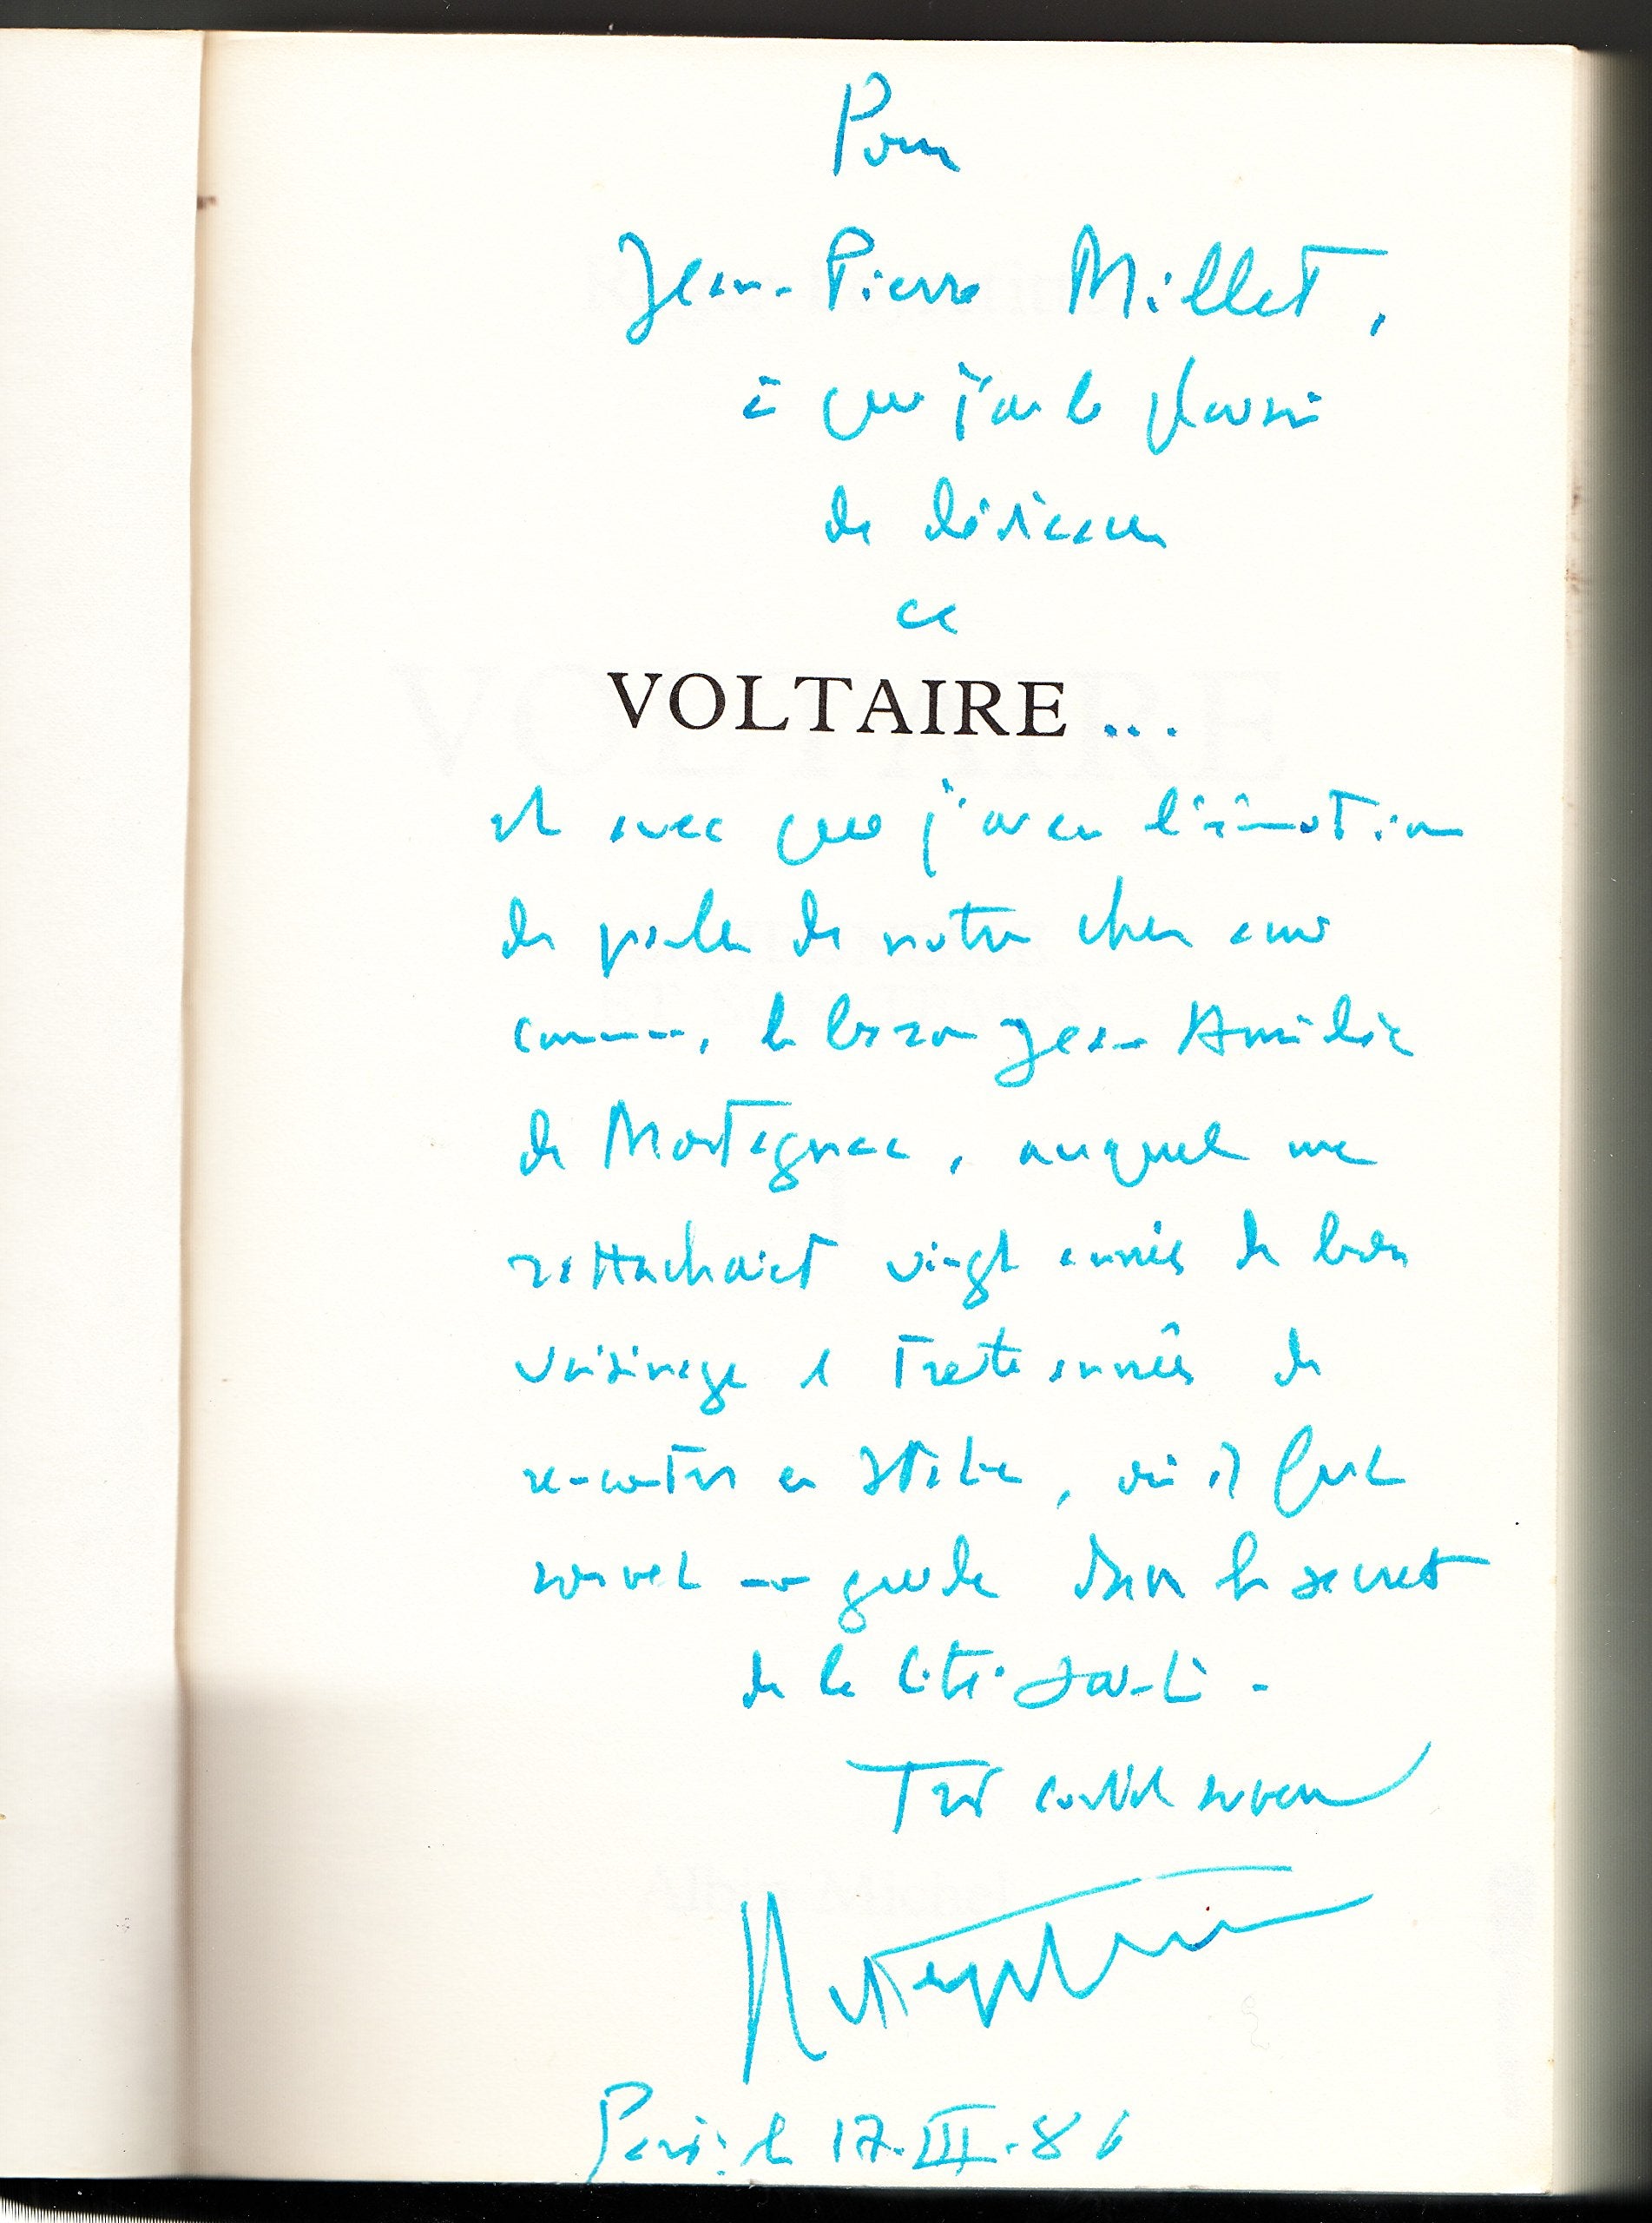 Pour
Jean-Pierre Millet,
à qui j'ai le plaisir
de dédicacer
ce
VOLTAIRE...
et avec qui j'ai eu l'émotion
de parler de notre cher ami
commun, le baron Jean Amédée
de Mortagnac, auquel me
rattachaient vingt années de bon
voisinage et trente années de
rencontres en Italie, où il fut
souvent mon guide dans les secrets
de la cité
Très cordial souvenir
Paris, le 17.III.86